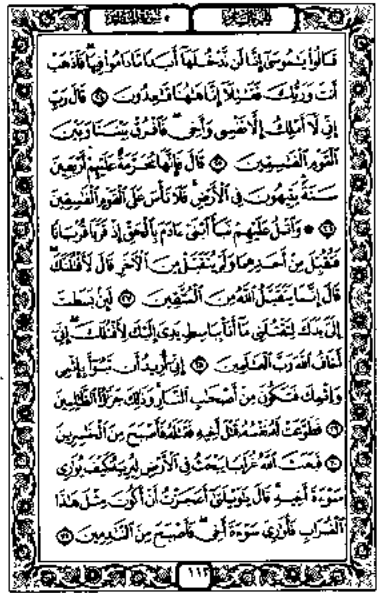 قَالُوا۟ يَـٰمُوسَىٰٓ إِنَّا لَن نَّدْخُلَهَآ أَبَدًا مَّا دَامُوا۟ فِيهَا ۖ فَٱذْهَبْ
أَنتَ وَرَبُّكَ فَقَـٰتِلَآ إِنَّا هَـٰهُنَا قَـٰعِدُونَ ٢٤ قَالَ رَبِّ
إِنِّى لَآ أَمْلِكُ إِلَّا نَفْسِى وَأَخِى ۖ فَٱفْرُقْ بَيْنَنَا وَبَيْنَ
ٱلْقَوْمِ ٱلْفَـٰسِقِينَ ٢٥ قَالَ فَإِنَّهَا مُحَرَّمَةٌ عَلَيْهِمْ ۛ أَرْبَعِينَ
سَنَةً ۛ يَتِيهُونَ فِى ٱلْأَرْضِ ۚ فَلَا تَأْسَ عَلَى ٱلْقَوْمِ ٱلْفَـٰسِقِينَ
٢٦ ۞ وَٱتْلُ عَلَيْهِمْ نَبَأَ ٱبْنَىْ ءَادَمَ بِٱلْحَقِّ إِذْ قَرَّبَا قُرْبَانًا
فَتُقُبِّلَ مِنْ أَحَدِهِمَا وَلَمْ يُتَقَبَّلْ مِنَ ٱلْـَٔاخَرِ قَالَ لَأَقْتُلَنَّكَ ۖ
قَالَ إِنَّمَا يَتَقَبَّلُ ٱللَّهُ مِنَ ٱلْمُتَّقِينَ ٢٧ لَئِنۢ بَسَطتَ
إِلَىَّ يَدَكَ لِتَقْتُلَنِى مَآ أَنَا۠ بِبَاسِطٍ يَدِىَ إِلَيْكَ لِأَقْتُلَكَ ۖ إِنِّىٓ
أَخَافُ ٱللَّهَ رَبَّ ٱلْعَـٰلَمِينَ ٢٨ إِنِّىٓ أُرِيدُ أَن تَبُوٓأَ بِإِثْمِى
وَإِثْمِكَ فَتَكُونَ مِنْ أَصْحَـٰبِ ٱلنَّارِ ۚ وَذَٰلِكَ جَزَٰٓؤُا۟ ٱلظَّـٰلِمِينَ
٢٩ فَطَوَّعَتْ لَهُۥ نَفْسُهُۥ قَتْلَ أَخِيهِ فَقَتَلَهُۥ فَأَصْبَحَ مِنَ ٱلْخَـٰسِرِينَ
٣٠ فَبَعَثَ ٱللَّهُ غُرَابًا يَبْحَثُ فِى ٱلْأَرْضِ لِيُرِيَهُۥ كَيْفَ يُوَٰرِى
سَوْءَةَ أَخِيهِ ۚ قَالَ يَـٰوَيْلَتَىٰٓ أَعَجَزْتُ أَنْ أَكُونَ مِثْلَ هَـٰذَا
ٱلْغُرَابِ فَأُوَٰرِىَ سَوْءَةَ أَخِى ۖ فَأَصْبَحَ مِنَ ٱلنَّـٰدِمِينَ ٣١
١١٢